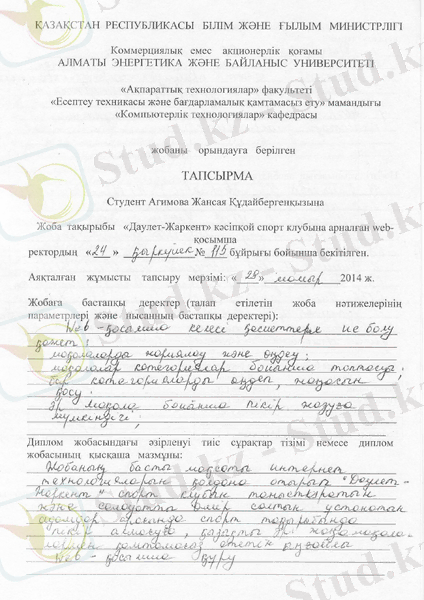 ҚАЗАҚСТАН РЕСПУБЛИКАСЫ БІЛІМ ЖӘНЕ ҒЫЛЫМ МИНИСТРЛІГІ
Коммерциялық емес акционерлік қоғамы
АЛМАТЫ ЭНЕРГЕТИКА ЖӘНЕ БАЙЛАНЫС УНИВЕРСИТЕТІ
«Ақпараттық технологиялар» факультеті
«Есептеу техникасы және бағдарламалық қамтамасыз ету» мамандығы
«Компьютерлік технологиялар» кафедрасы
жобаны орындауға берілген
ТАПСЫРМА
Студент Агимова Жансая Құдайбергенқызына
Жоба тақырыбы «Даулет-Жаркент» кәсіпқой спорт клубына арналған web-
қосымша
ректордың «24» қыркүйек № 115 бұйрығы бойынша бекітілген.
Аяқталған жұмысты тапсыру мерзімі: «28» мамыр 2014 ж.
Жобаға бастапқы деректер (талап етілетін жоба нәтижелерінің
параметрлері және нысанның бастапқы деректері):
Web-қосымша келесі қасиеттерге ие болу
қажет:
мақалаларды жариялау және өңдеу;
мақалалар категориялар бойынша топтасуы;
бір категорияларды өңдеп, жаңасын
қосу;
әр мақала бойынша пікір жазуға
мүмкіндігі;
Диплом жобасындағы әзірленуі тиіс сұрақтар тізімі немесе диплом
жобасының қысқаша мазмұны:
Жобаның басты мақсаты интернет
технологияларын қолдана отырып "Даулет-
Жаркент" спорт клубын таныстыратын
және салауатты өмір салтын ұстанатын
адамдар арасында спорт тақырыбында
пікір алмасуға, қазақты жаңа мақала-
лармен қамтамасыз ететін ыңғайлы
Web-қосымша құру